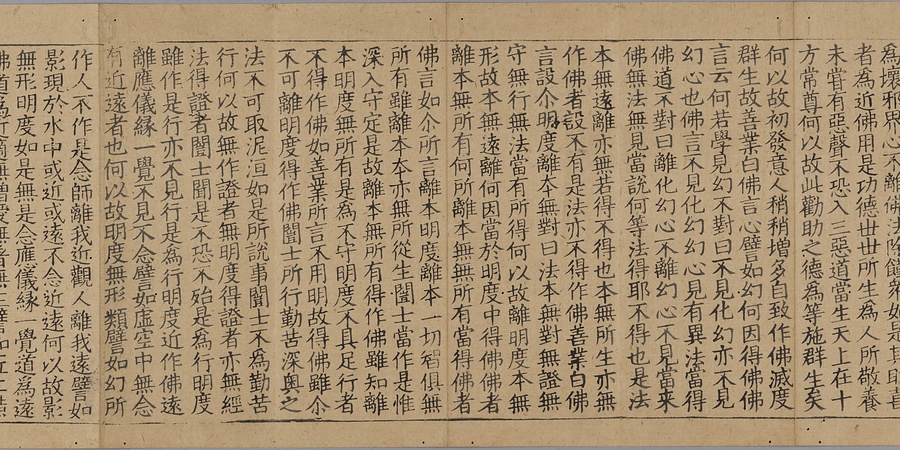 為壞邪界心不離佛法除饉衆如是其助喜
者為近佛用是功德世世所生為人所敬養
未甞有惡聲不恐入三惡道當生天上在十
方常尊何以故此勸助之德為等施群生矣
何以故初發意人稍稍增多自致作佛滅度
群生故善業白佛心譬如幻何因得佛佛
言云何若學見幻不對曰不見化幻亦不見
幻心也佛言不見化幻幻心見有異法當得
佛道不對曰離化幻心不離幻心不見當來
佛無法無見當說何等法得耶不得也是法
本無遠離亦無若得不得也本無所生亦無
作佛者設不有是法亦不得作佛善業白佛
言設尒明度離本無對曰法本無對無證無
守無行無法當有所得何以故離明度本無
形故本無遠離何因當於明度中得佛佛者
離本無所有何所離本無所有當得佛
佛言如尒所言離本明度離本一切智俱無
所有雖離本本亦無所從生闓士當作是惟
深入守定是故離本無所有得作佛雖知離
本明度無所有是為不守明度不具足行者
不得作佛如善業所言不用明故得佛雖尒
不可離明度得作佛闓士所行勤苦深奧之
法不可取泥洹如是所說事闓士不為勤苦
行何以故無作證者無明度得證者亦無經
法得證者闓士聞是不恐不殆是為行明度
雖作是行亦不見行是為行明度近作佛遠
離應儀緣一覺不見不念譬如虛空中無念
有近遠者也何以故明度無形類譬如幻所
作人不作是念師離我近觀人離我遠譬如
影現於水中或近或遠不念近遠何以故影
無形明度如是無是念應儀緣一覺道為遠